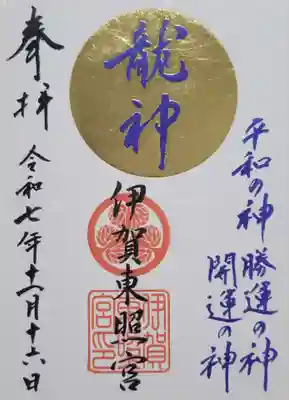 平和の神 勝運の神
開運の神
龍神
伊賀東照宮
伊賀東照宮印
奉拝
令和七年十二月十六日